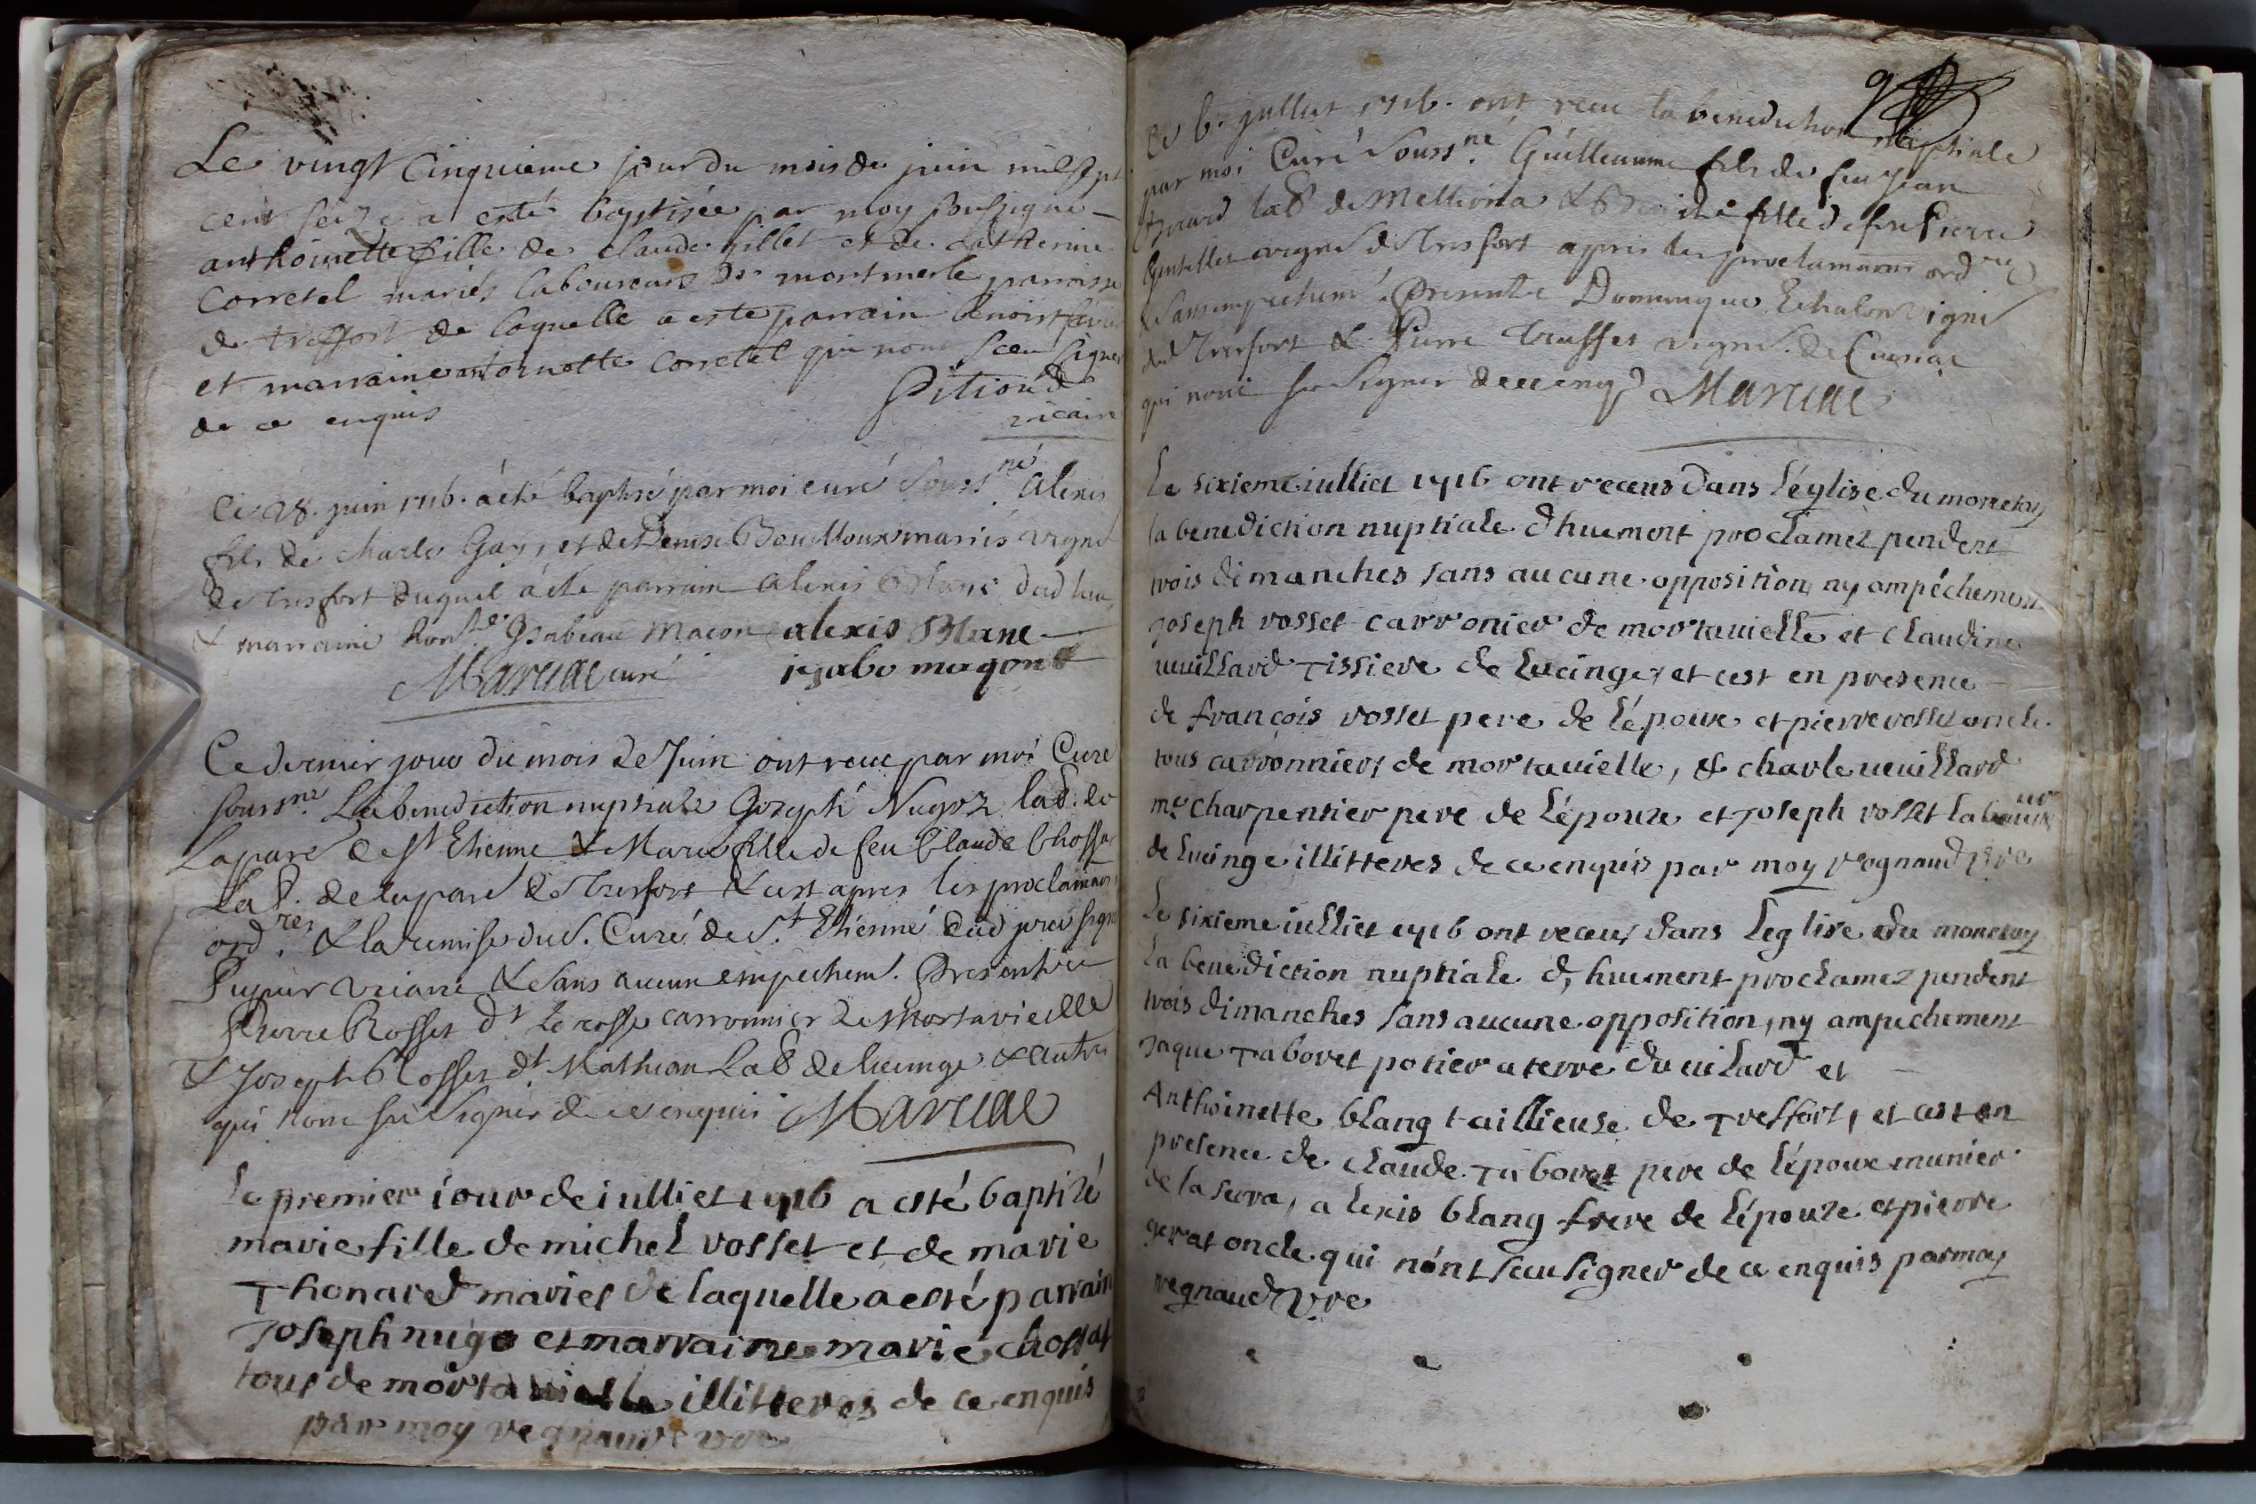 Le vingt cinquieme jour du mois de juin mil sept
cent seize a esté baptisée par moy soussigné
anthoinette fille de claude fillet et de Catherine
Corretel mariés laboureurs de montmerle parroisse
de treffort de laquelle a esté parrain benoist
et marraine antoinette Corretel qui n'ont sceu signer
de ce enquis Pitiond
vicaire
Ce 28. juin 1716. a été baptisé par moi curé souss.né Alexis
fils de Charles Gay, et de Denise Bouilloux mariés vigns
de Tresfort duquel a été parrain Alexis Blanc dud lieu,
& marraine hon.te Ysabeau Macon alexis Blanc
Maruae curé isabo maqon
Ce dernier jour du mois de Juin ont receu par moi Curé
souss.né La benediction nuptiale Joseph Nugoz lab. de
Laparé de St Etienne & Marie fille de feu Claude Chossat
Lab. de lapare de Tresfort & c'est apres les proclamaons
ord.res & la remise du S. Curé de S.t Etienne dud jour signé
Puguir vicaire & sans aucun empechem.t Presents
Pierre Rosset dt Lerosse carronnier de Mortavieille
& Joseph Rosset dt Mathion Lab de lucinge & autre
qui n'ont su signer de ce enquis Maruae
Le premier iour de iulliet 1716 a esté baptizé
marie fille de michel rosset et de marie
Thonard mariés de laquelle a esté parrain
Joseph nugo et marraine marie chossat
tous de mortavielle illitteres de ce enquis
par moy regnaud vre
9
Ce 6. juillet 1716. ont receu la benediction nuptiale
par moi Curé Souss.né Guilleaume fils de feu Jean
lab de Mellionna & fille de feu Pierre
vigns de Tresfort apres les proclamaons ord.res
& sans empechemt Presents Dominique Echalon vigns
dud Tresfort & Pierre Truffet vigns. de Cuisia
qui n'ont su signer de ce enq Maruae
Le sixieme iulliet 1716 ont receus dans l'église du monetay
la benediction nuptiale dhuement proclamez pendent
trois dimanches sans aucune opposition ny ampéchement
Joseph rosset carronier de mortavielle et claudine
veuillard Tissiere de Lucinge, et cest en presence
de françois rosset pere de l'époux et pierre rosset oncle
tous carronniers de mortavielle, & charle veuillard
me charpentier pere de l'épouze et Joseph rosset laboureur
de Lucinge illitteres de ce enquis par moy regnaud vre
Le sixieme iulliet 1716 ont receus dans leglise du monetay
la benediction nuptiale d,huement proclamez pendent
trois dimanches sans aucune opposition, ny ampechement
Jaque Taboret potier a terre du vilard et
Anthoinette blang taillieuse de Treffort, et cest en
presence de claude Taboret pere de l'époux munier
de la serra, alexis blang frere de l'épouze et pierre
gerat oncle qui n'ont sceu signer de ce enquis par moy
regnaud vre